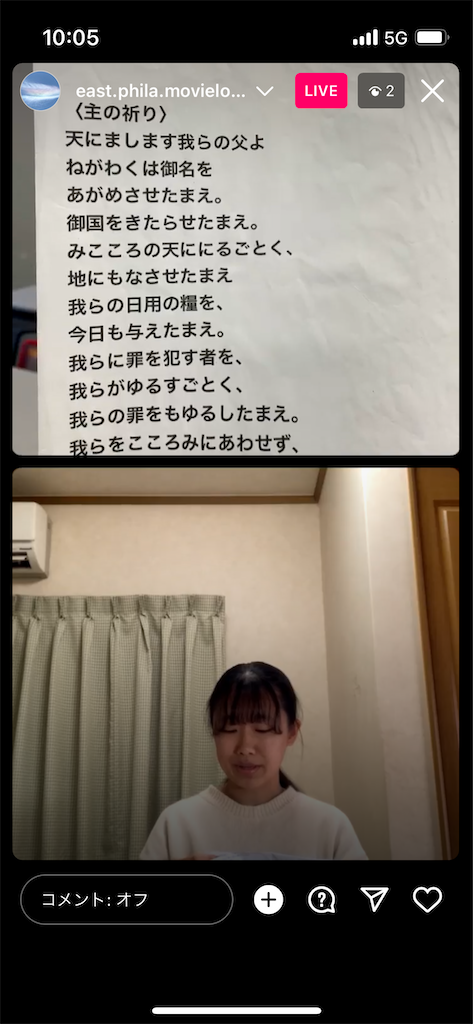 10:05
5G
east.phila.movielo...
LIVE
2
〈主の祈り〉
天にまします我らの父よ
ねがわくは御名を
あがめさせたまえ。
御国をきたらせたまえ。
みこころの天ににるごとく、
地にもなさせたまえ
我らの日用の糧を、
今日も与えたまえ。
我らに罪を犯す者を、
我らがゆるすごとく、
我らの罪をもゆるしたまえ。
我らをこころみにあわせず、
コメント: オフ